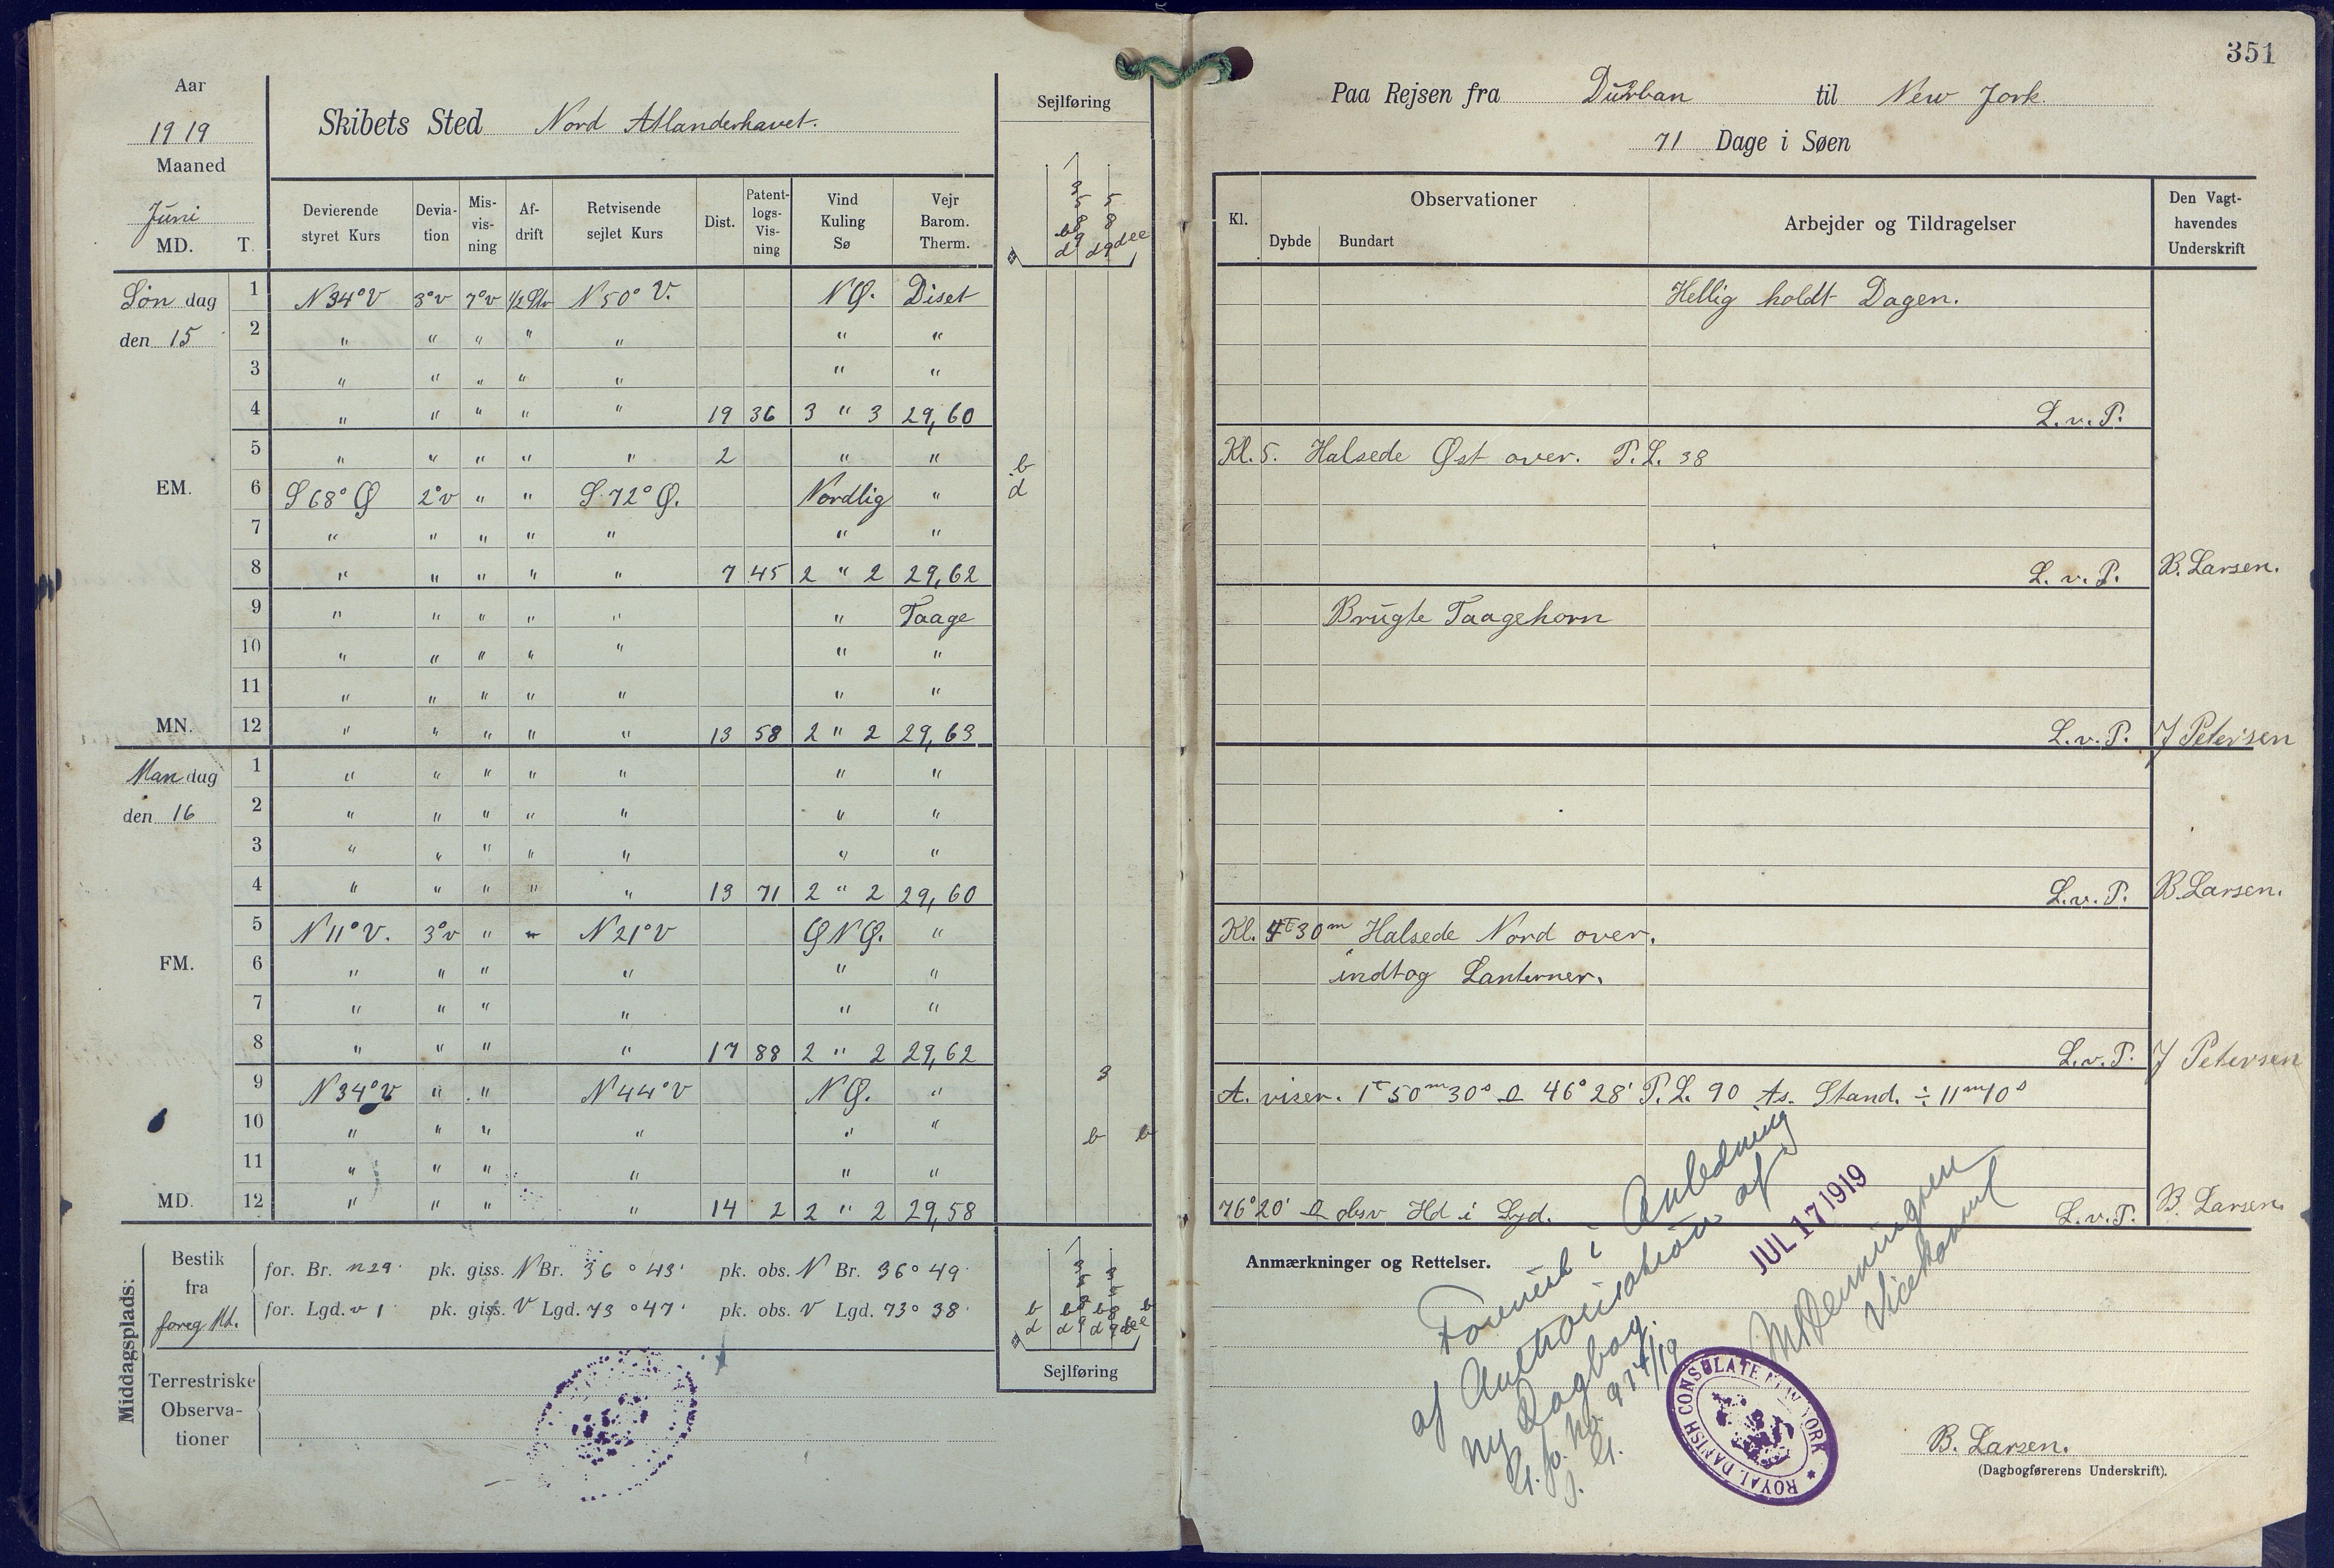 351
Aar
1919
Maaned
Juni
MD. T.
Skibets Sted Nord Atlanderhavet.
Sejlføring
Paa Rejsen fra Durban til New Jork.
71 Dage i Søen
Devierende styret Kurs Devia-tion Mis-vis-ning Af-drift Retvisende sejlet Kurs Dist. Patent-logs-Vis-ning Vind Kuling Sø Vejr Barom. Therm.
Søndag 1 N 34° V 3° v 7° v 1/2 Str N 50° V. N Ø. Diset
den 15 2 " " " " " " "
3 " " " " " " "
4 " " " " " 19 36 3 " 3 29,60
5 " " " " " 2 " " b
EM. 6 S 68° Ø 2° v " " S 72° Ø. Nordlig " d
7 " " " " " " "
8 " " " " " 7 45 2 " 2 29,62
9 " " " " " " Taage
10 " " " " " " "
11 " " " " " " "
MN. 12 " " " " " 13 58 2 " 2 29,63
Mandag 1 " " " " " " "
den 16 2 " " " " " " "
3 " " " " " " "
4 " " " " " 13 71 2 " 2 29,60
5 N 11° V. 3° v " " N 21° V Ø N Ø. "
FM. 6 " " " " " "
7 " " " " " "
8 " " " " 17 88 2 " 2 29,62
9 N 34° V " " N 44° V N Ø. " 3
10 " " " " " " b b
11 " " " " " "
MD. 12 " " " " 14 2 2 " 2 29,58
Middagsplads:
Bestik fra foreg Md.
for. Br. n 29' pk. giss. N Br. 36° 43' pk. obs. N Br. 36° 49'
for. Lgd. v 1' pk. giss. V Lgd. 73° 47' pk. obs. V Lgd. 73° 38'
Sejlføring
Terrestriske Observa-tioner
Kl. Observationer Arbejder og Tildragelser Den Vagt-havendes Underskrift
Dybde Bundart
Hellig holdt Dagen.
L. v. P.
Kl. 5. Halsede Øst over. P. L. 38
L. v. P. B. Larsen.
Brugte Taagehorn
L. v. P. J Petersen
L. v. P. B. Larsen.
Kl. 4 T 30 m Halsede Nord over.
indtog Lanterner.
L. v. P. J Petersen
A. viser. 1 T 50 m 30 s 46° 28' P. L. 90 As. Stand. ÷ 11 m 10 s
76° 20' obsv Hd i Syd. L. v. P. B. Larsen.
Anmærkninger og Rettelser.
i Anledning
af
af
ny Dagbog.
JUL 17 1919
Vicekonsul
ROYAL DANISH CONSULATE NEW YORK
B. Larsen.
(Dagbogførerens Underskrift).